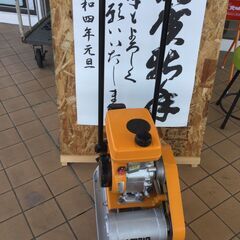 賀新年
もよろしく
願いいたします
和四年元旦